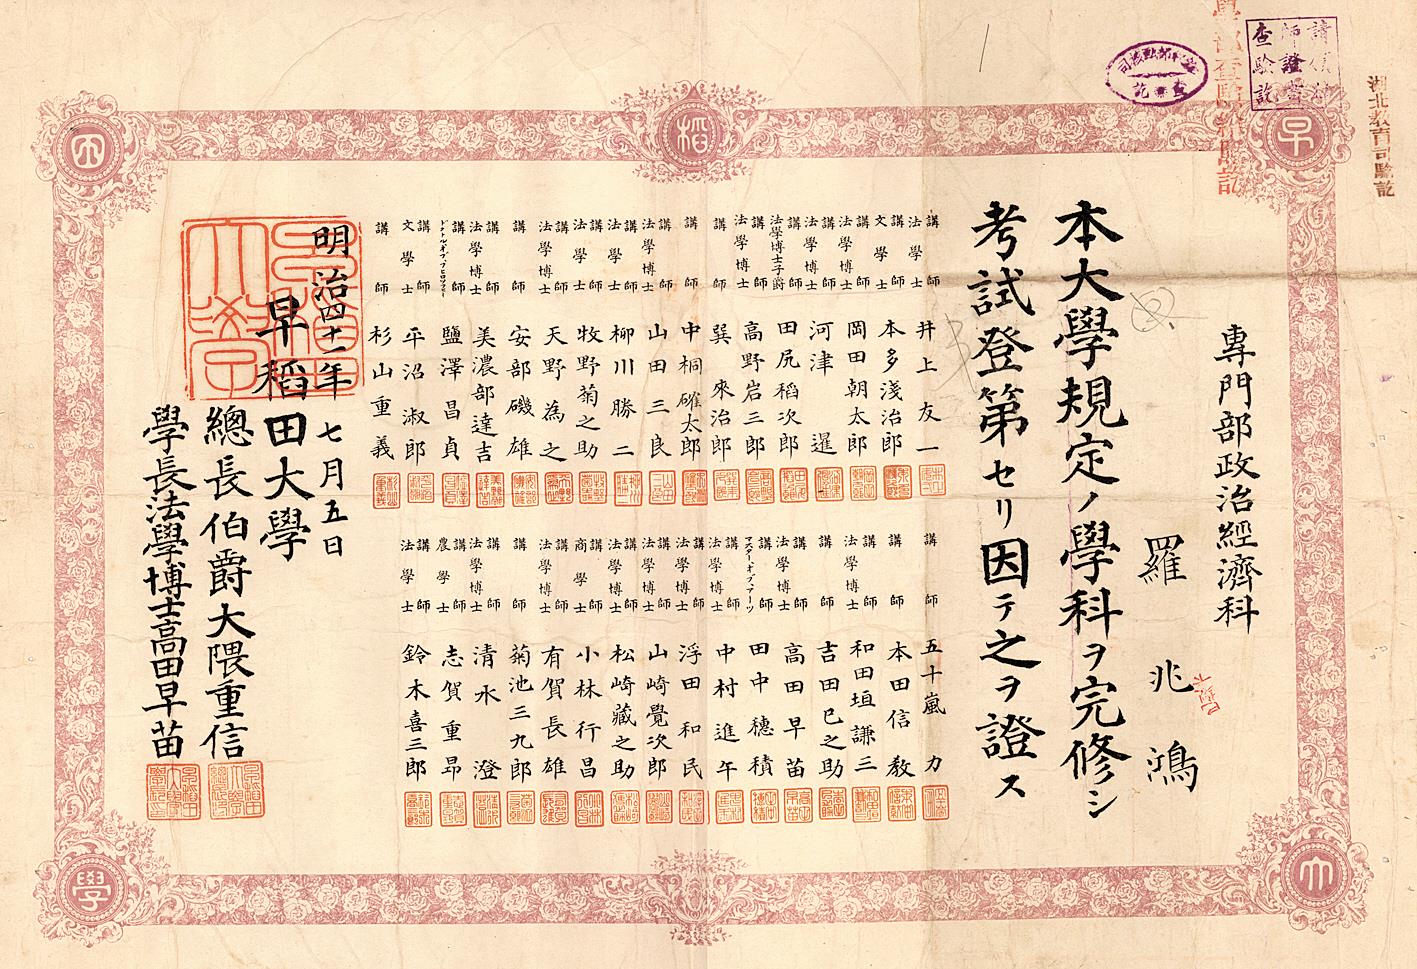 早
稻
田
大
學
湖北教育司驗訖
專門部政治經濟科
羅兆鴻
本大學規定ノ學科ヲ完修シ
考試登第セリ因テ之ヲ證ス
講師 法學士 井上友一
講師 文學士 本多淺治郎
講師 法學博士 岡田朝太郎
講師 法學博士 河津暹
講師 法學博士子爵 田尻稻次郎
講師 法學博士 高野岩三郎
講師 巽來治郎
講師 中桐確太郎
講師 法學博士 山田三良
講師 法學士 柳川勝二
講師 法學士 牧野菊之助
講師 法學博士 天野為之
講師 安部磯雄
講師 法學博士 美濃部達吉
講師 ドクトルオブフヒロソフヒー 鹽澤昌貞
講師 文學士 平沼淑郎
講師 杉山重義
講師 五十嵐力
講師 本田信教
講師 法學博士 和田垣謙三
講師 吉田巳之助
講師 法學博士 高田早苗
講師 マスターオブアーツ 田中穗積
講師 法學博士 中村進午
講師 浮田和民
講師 法學博士 山崎覺次郎
講師 法學博士 松崎藏之助
講師 商學士 小林行昌
講師 法學博士 有賀長雄
講師 菊池三九郎
講師 法學博士 清水澄
講師 農學士 志賀重昂
講師 法學士 鈴木喜三郎
明治四十一年七月五日
早稻田大學
總長伯爵大隈重信
學長法學博士高田早苗